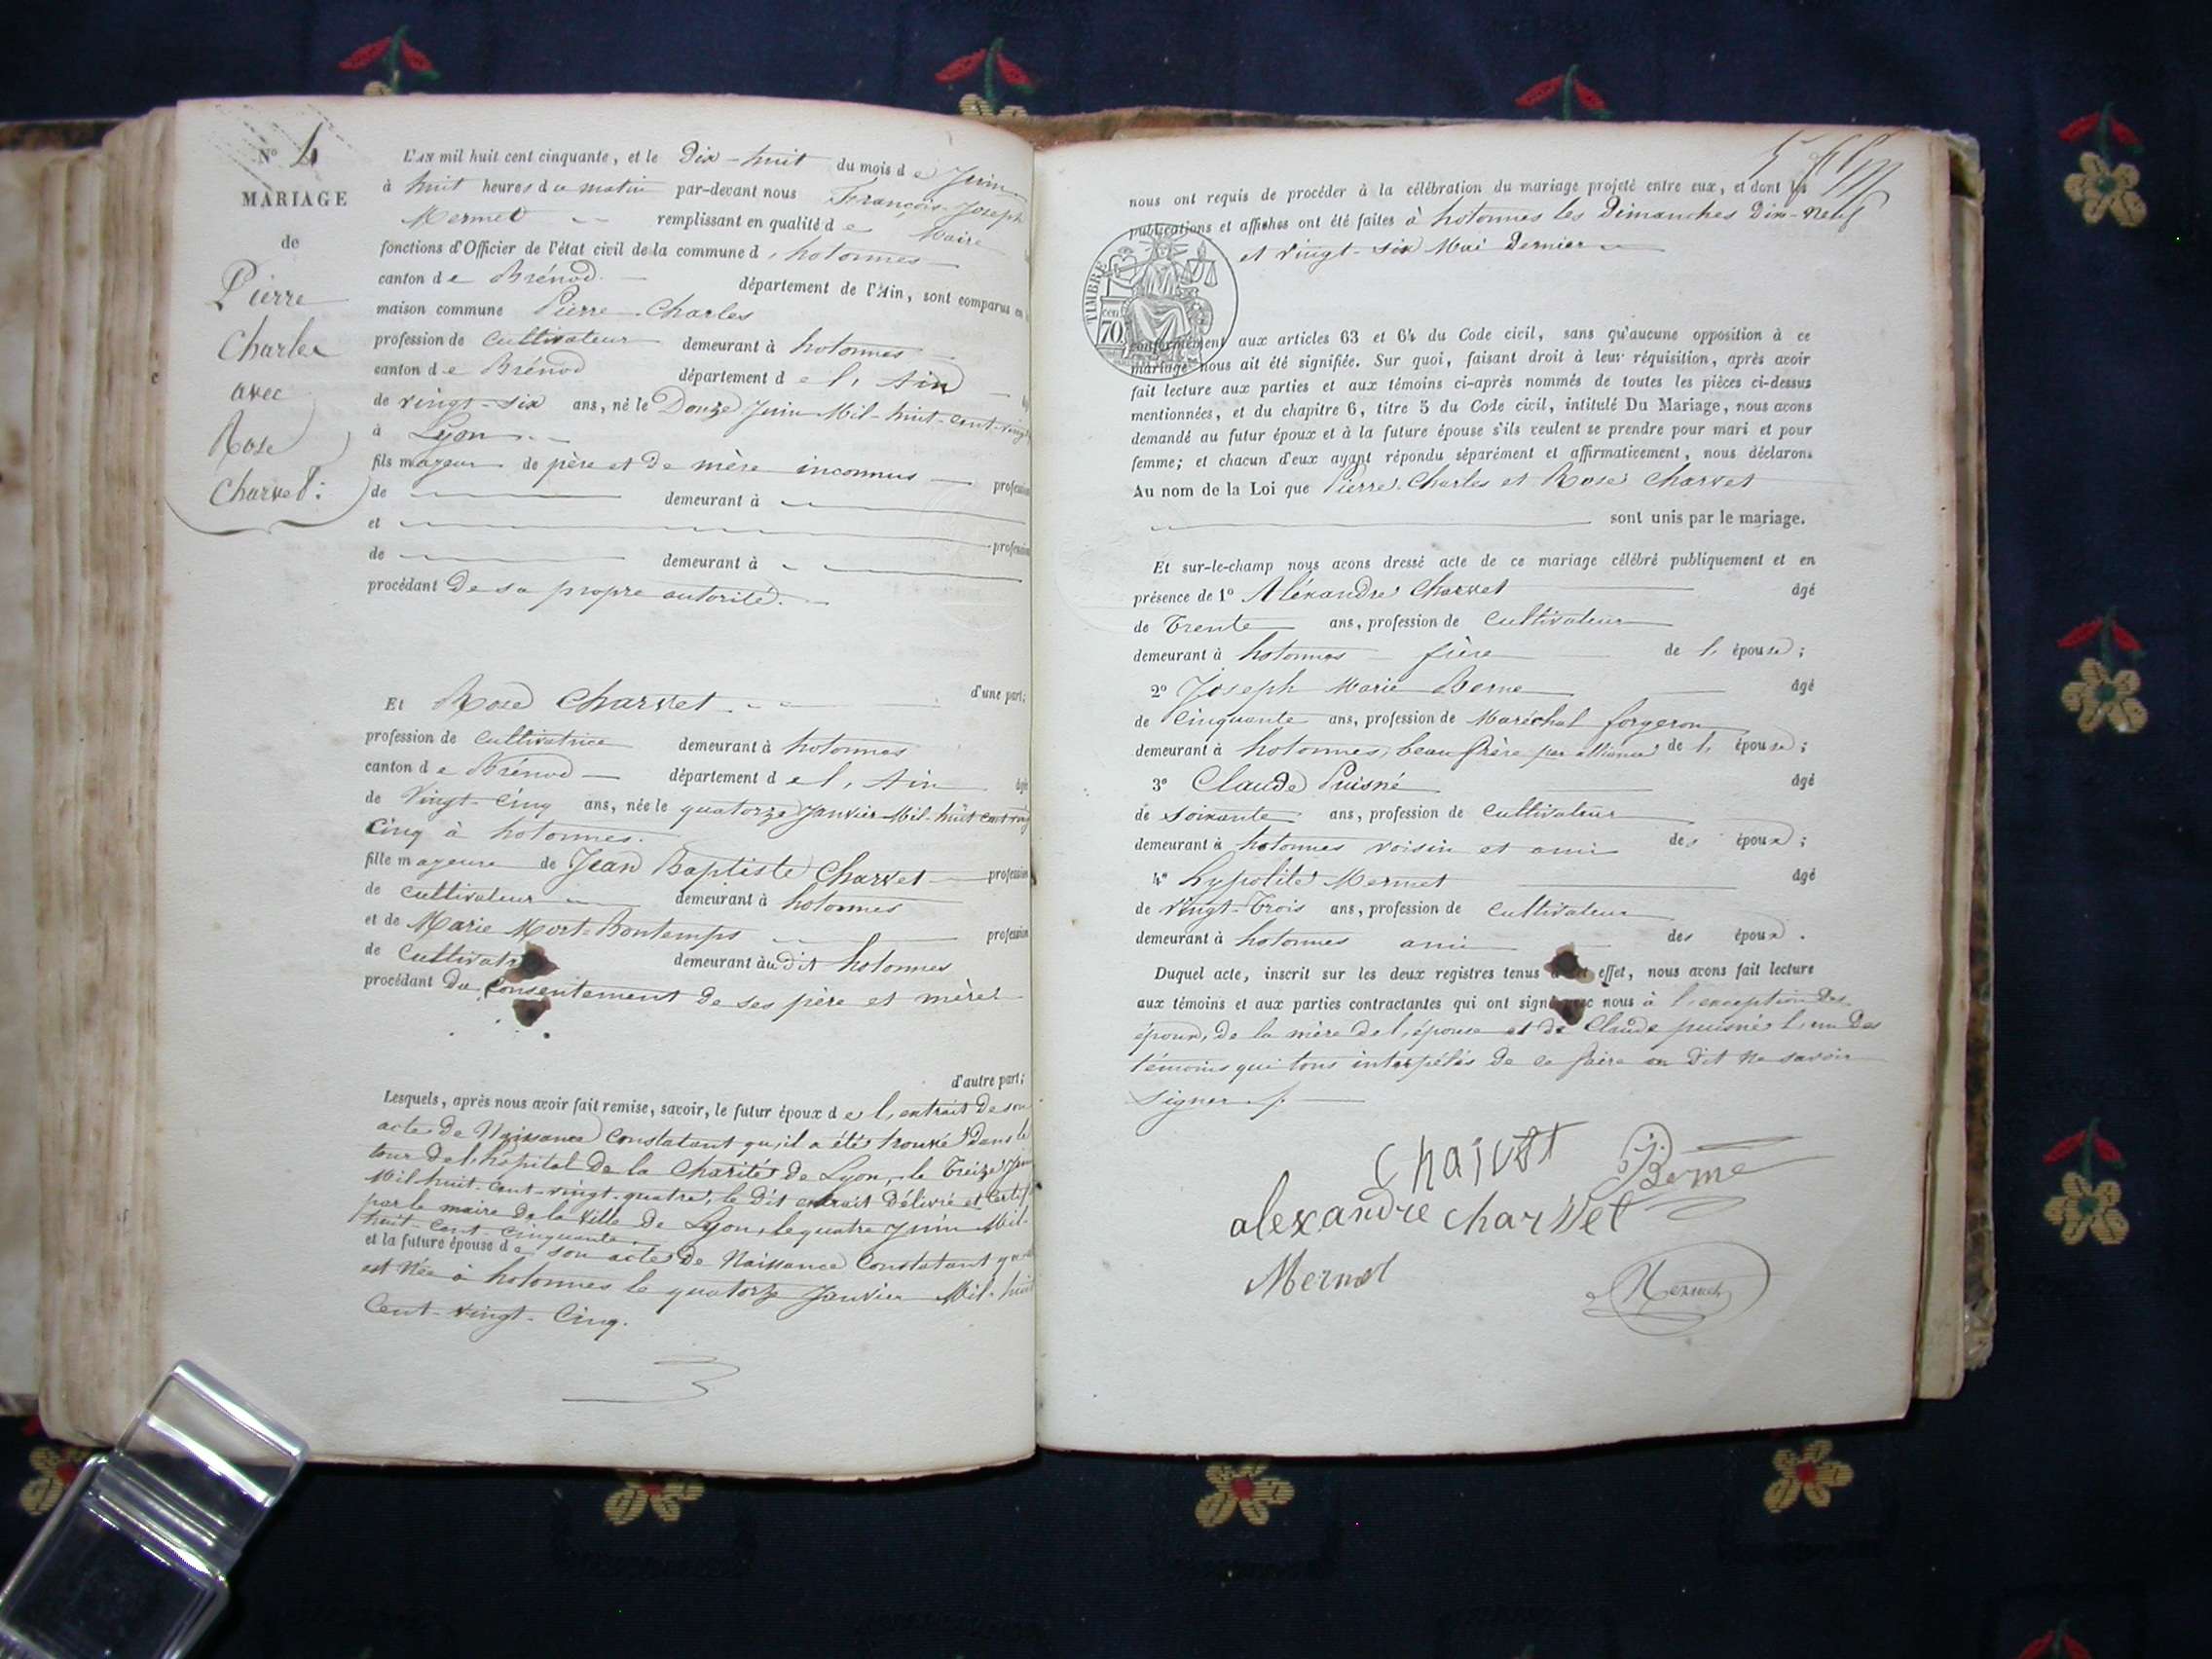 N° 4
MARIAGE
de
Pierre
Charles
avec
Rose
Charvet:
L'AN mil huit cent cinquante, et le Dix-huit du mois de Juin
à huit heures du matin par-devant nous François-Joseph
Mermet remplissant en qualité de Maire
fonctions d'Officier de l'état civil de la commune d'hotonnes
canton de Brénod département de l'Ain, sont comparus en
maison commune Pierre-Charles
profession de Cultivateur demeurant à hotonnes
canton de Brénod département de l'Ain
de vingt-six ans, né le Douze Juin Mil-huit-Cent-vingt
à Lyon
fils mageur de père et de mère inconnus profession
de demeurant à
et profession
de demeurant à
procédant De sa propre autorité.
d'une part;
Et Rose Charvet
profession de Cultivatrice demeurant à hotonnes
canton de Brénod département de l'Ain âgée
de Vingt-Cinq ans, née le quatorze Janvier Mil-huit Cent vingt
Cinq à hotonnes.
fille mageure de Jean Baptiste Charvet profession
de Cultivateur demeurant à hotonnes
et de Marie Mort-Bontemps profession
de Cultivat demeurant au dit hotonnes
procédant Du Consentement De ses père et mère
d'autre part;
Lesquels, après nous avoir fait remise, savoir, le futur époux de l'extrait De son
acte De Naissance Constatant qu'il a été trouvé Dans le
tour De l'hôpital De la Charité De Lyon, le Treize Juin
Mil-huit-Cent-vingt-quatre, le Dit extrait Délivré et Certif
par le maire De la Ville De Lyon, le quatre Juin Mil-
huit-Cent-Cinquante.
et la future épouse de son acte De Naissance Constatant qu
est Née à hotonnes le quatorze Janvier Mil-huit
Cent-vingt-Cinq.
nous ont requis de procéder à la célébration du mariage projeté entre eux, et dont les
publications et affiches ont été faites à hotonnes les Dimanches Dix-Neuf
et vingt-six Mai Dernier
TIMBRE
cen
70
conformément aux articles 63 et 64 du Code civil, sans qu'aucune opposition à ce
mariage nous ait été signifiée. Sur quoi, faisant droit à leur réquisition, après avoir
fait lecture aux parties et aux témoins ci-après nommés de toutes les pièces ci-dessus
mentionnées, et du chapitre 6, titre 5 du Code civil, intitulé Du Mariage, nous avons
demandé au futur époux et à la future épouse s'ils veulent se prendre pour mari et pour
femme; et chacun d'eux ayant répondu séparément et affirmativement, nous déclarons
Au nom de la Loi que Pierre-Charles et Rose Charvet
sont unis par le mariage.
Et sur-le-champ nous avons dressé acte de ce mariage célébré publiquement et en
présence de 1° Aléxandre Charvet âgé
de Trente ans, profession de Cultivateur
demeurant à hotonnes frère de l'épouse;
2° Joseph Marie Berne âgé
de Cinquante ans, profession de Maréchal forgeron
demeurant à hotonnes, beau frère par alliance de l'épouse;
3° Claude Puisné âgé
de soixante ans, profession de Cultivateur
demeurant à hotonnes voisin et ami des époux;
4° hypolite Mermet âgé
de Vingt-Trois ans, profession de Cultivateur
demeurant à hotonnes ami des époux.
Duquel acte, inscrit sur les deux registres tenus à cet effet, nous avons fait lecture
aux témoins et aux parties contractantes qui ont signé avec nous à l'exception Des
époux, De la mère De l'épouse et De Claude puisné l'un Des
témoins qui tous interpélés De ce faire on Dit Ne savoir
signer.
Charvet
Berne
alexandre charvet
Mermet
Mermet